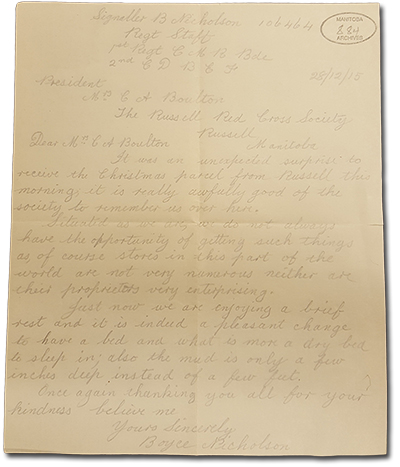 Signaller B Nicholson 106464
MANITOBA
ARCHIVES
Regt Staff
1st Regt C M R Bde
2nd C D B E F
28/12/15
President
Mrs C A Boulton
The Russell Red Cross Society
Russell
Dear Mrs C A Boulton Manitoba
It was an unexpected surprise to
receive the Christmas parcel from Russell this
morning, it is really awfully good of the
society to remember us over here.
Situated as we are, we do not always
have the opportunity of getting such things
as of course stores in this part of the
world are not very numerous neither are
their proprietors very enterprising.
Just now we are enjoying a brief
rest and it is indeed a pleasant change
to have a bed and what is more a dry bed
to sleep in, also the mud is only a few
inches deep instead of a few feet.
Once again thanking you all for your
kindness believe me
Yours Sincerely
Boyce Nicholson